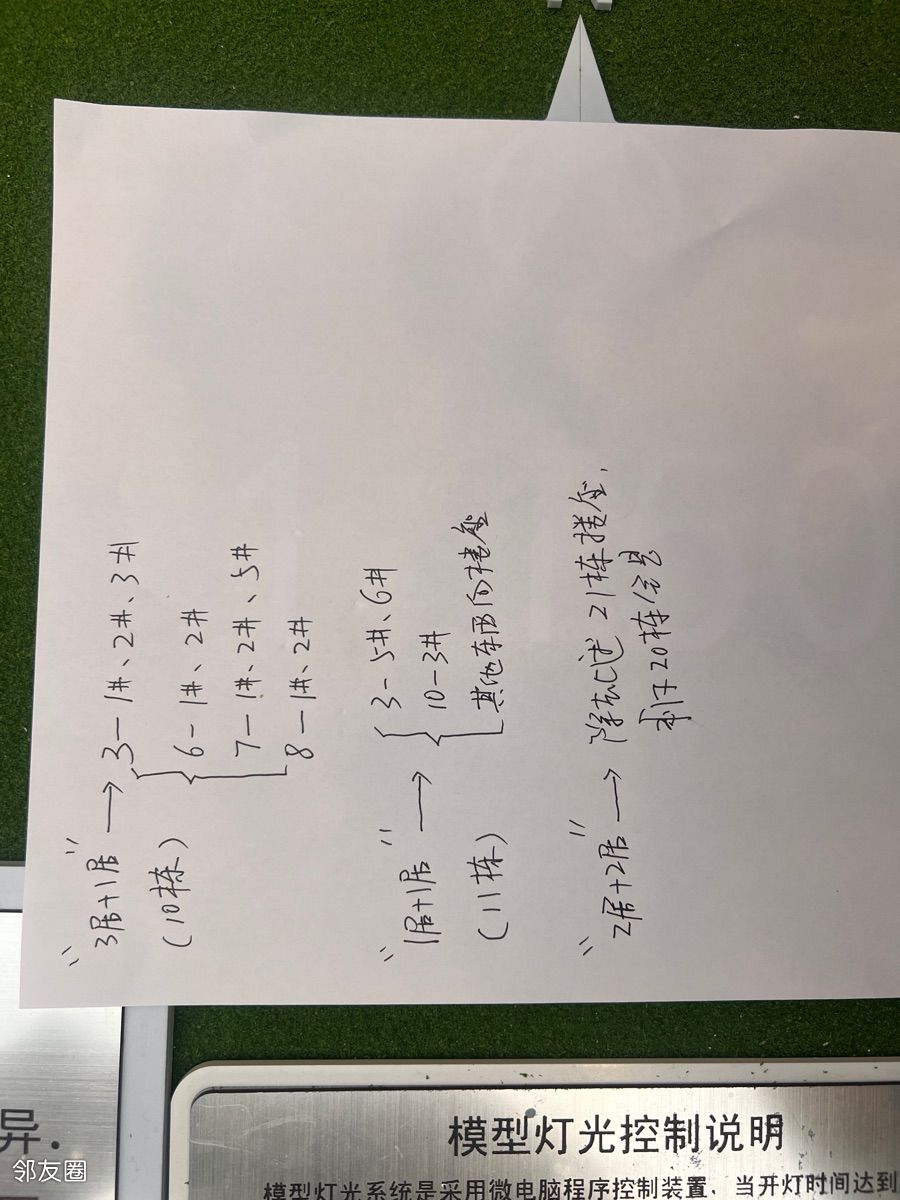 "3居+1居" → 3-1#、2#、3#
(10栋) 6-1#、2#
7-1#、2#、5#
8-1#、2#
"1居+1居" → 3-5#、6#
(11栋) 10-3#
其他东西向楼座
"2居+2居" → 除去上述21栋楼座,
剩下20栋全是
异.
模型灯光控制说明
模型灯光系统是采用微电脑程序控制装置、当开灯时间达到
邻友圈